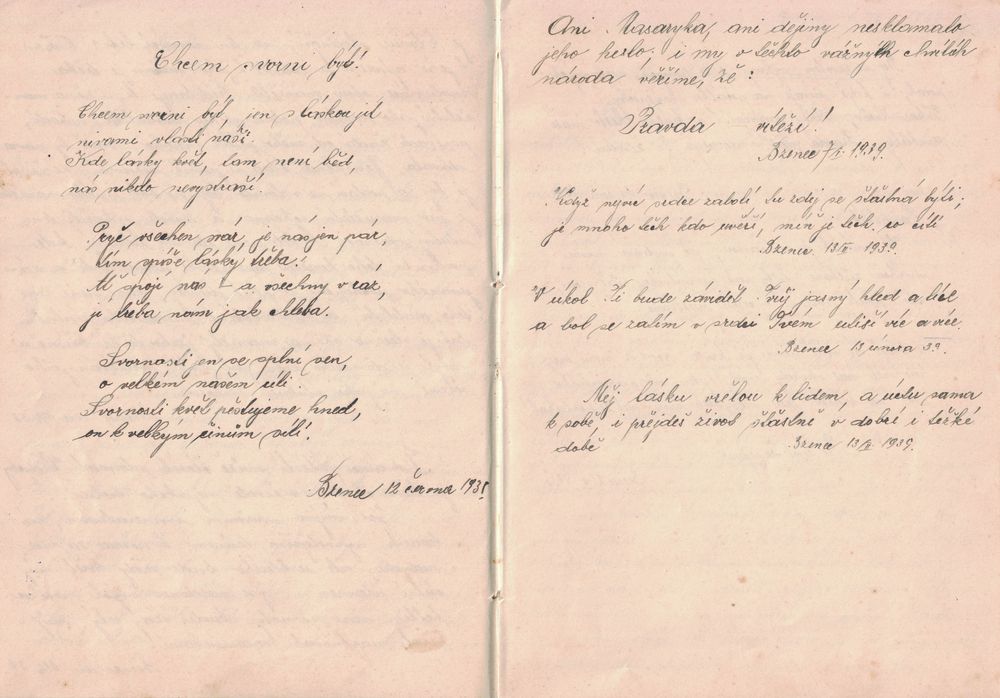 Chcem svorni být!
Chcem svorni být, jen s láskou jít
nivami vlasti naší.
Kde lásky květ, tam není běd,
nás nikdo nevystraší.
Pryč všechen svár, je nás jen pár,
tím spíše lásky třeba!
Ať spojí nás – a všechny v ráz,
je třeba nám jak chleba.
Svorností jen se splní sen,
o velkém našem cíli.
Svornosti květ pěstujeme hned,
on k velkým činům sílí.
Bzenec 12 června 193
Ani Masaryka, ani dějiny nesklamalo
jeho heslo; i my v těchto vážných chvílích
národa věříme, že:
Pravda vítězí!
Bzenec 7/II. 1939.
Když nejvíc srdce zabolí, tu zdej se šťastná býti;
je mnoho těch kdo uvěří, míň je těch, co cítí
Bzenec 13/II 1939.
V úkol Ti bude závidět Tvůj jasný hled a líc
a bol se zatím v srdci Tvém utiší víc a více.
Bzenec 13 února 39.
Měj lásku vřelou k lidem, a úctu sama
k sobě, i přejdeš život šťastně v dobré i těžké
době
Bzenec 13/II. 1939.